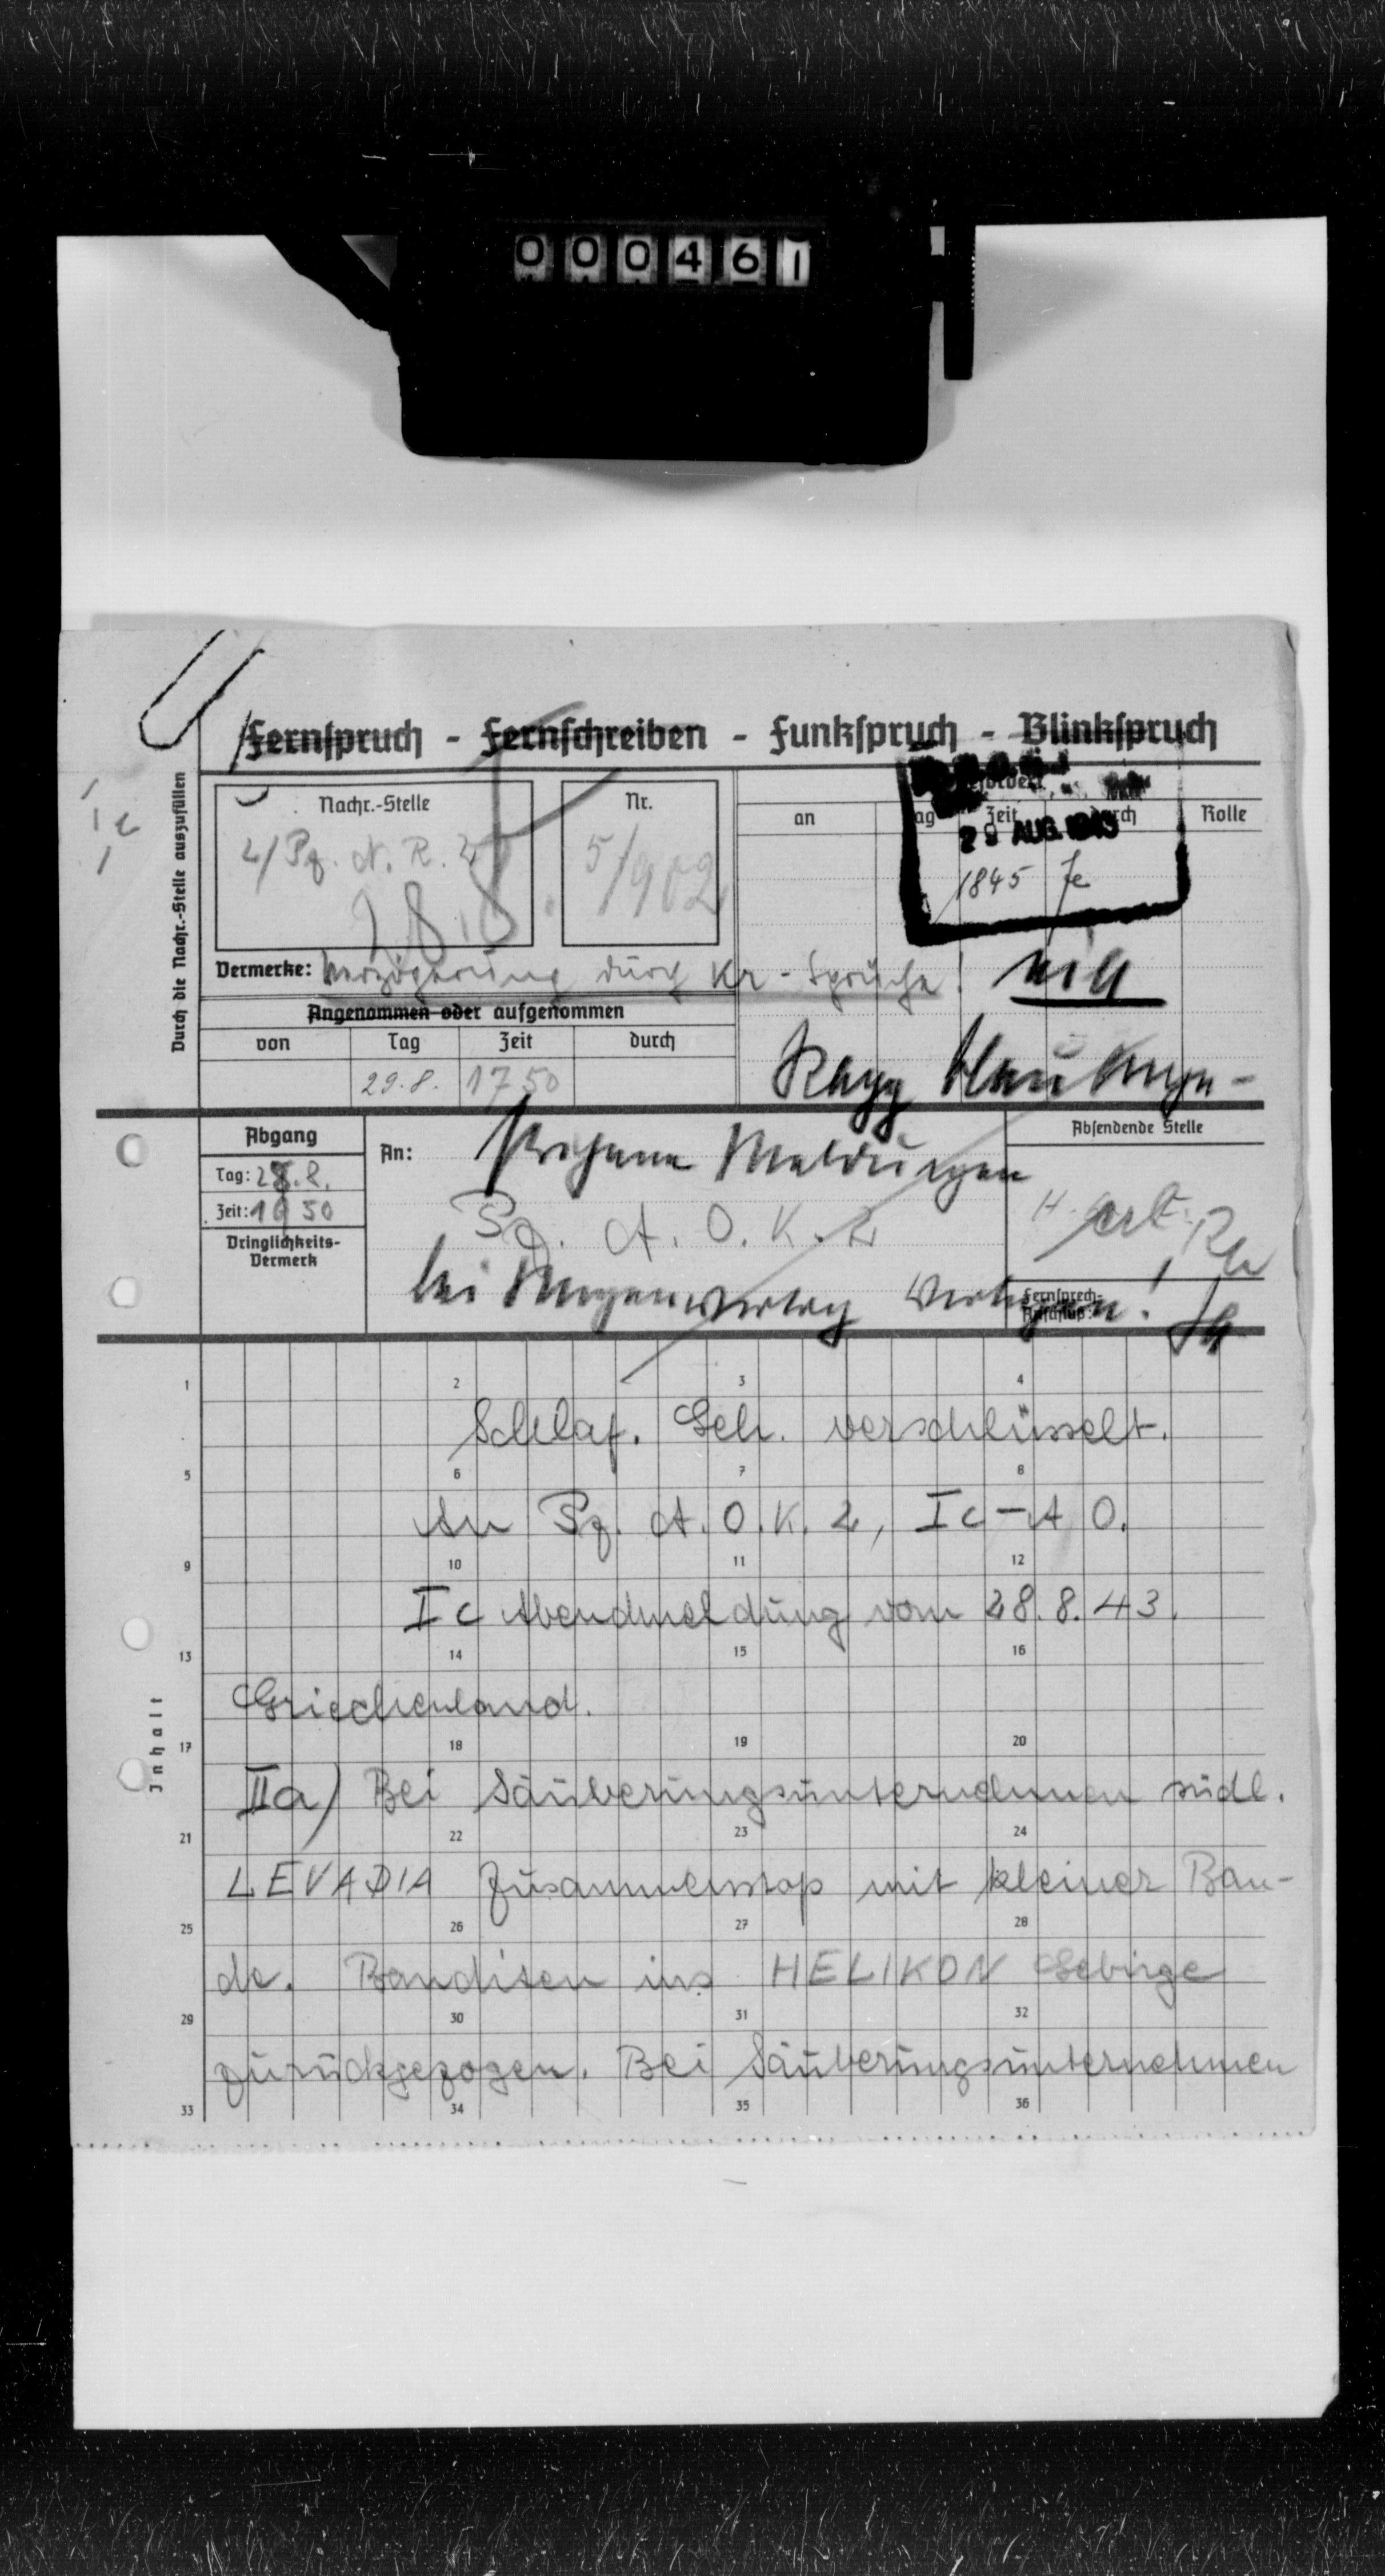 000461
Fernspruch - Fernschreiben - Funkspruch - Blinkspruch
Durch die Nachr.-Stelle auszufüllen
Nachr.-Stelle
Nr.
4/Pz. N. R. 2
5/902
28.8.
an
Zeit
Rolle
29 AUG. 1943
1845 Je
Vermerke: Verzögerung durch Kr-Sprüche!
Angenommen oder aufgenommen
von Tag Zeit durch
29.8. 1750
Abgang
Tag: 28.8.
Zeit: 1950
Dringlichkeits-
Vermerk
An:
Meldungen
Pz. A. O. K. 2
bei
Absendende Stelle
Fernsprech-
Anschluß:
Inhalt
1 2 3 4
Schlaf. Geh. verschlüsselt.
5 6 7 8
An Pz. A. O. K. 2, Ic-A O.
9 10 11 12
Ic Abendmeldung vom 28.8.43.
13 14 15 16
Griechenland.
17 18 19 20
IIa) Bei Säuberungsunternehmen südl.
21 22 23 24
LEVADIA Zusammenstoß mit kleiner Ban-
25 26 27 28
de. Banditen ins HELIKON Gebirge
29 30 31 32
zurückgezogen. Bei Säuberungsunternehmen
33 34 35 36